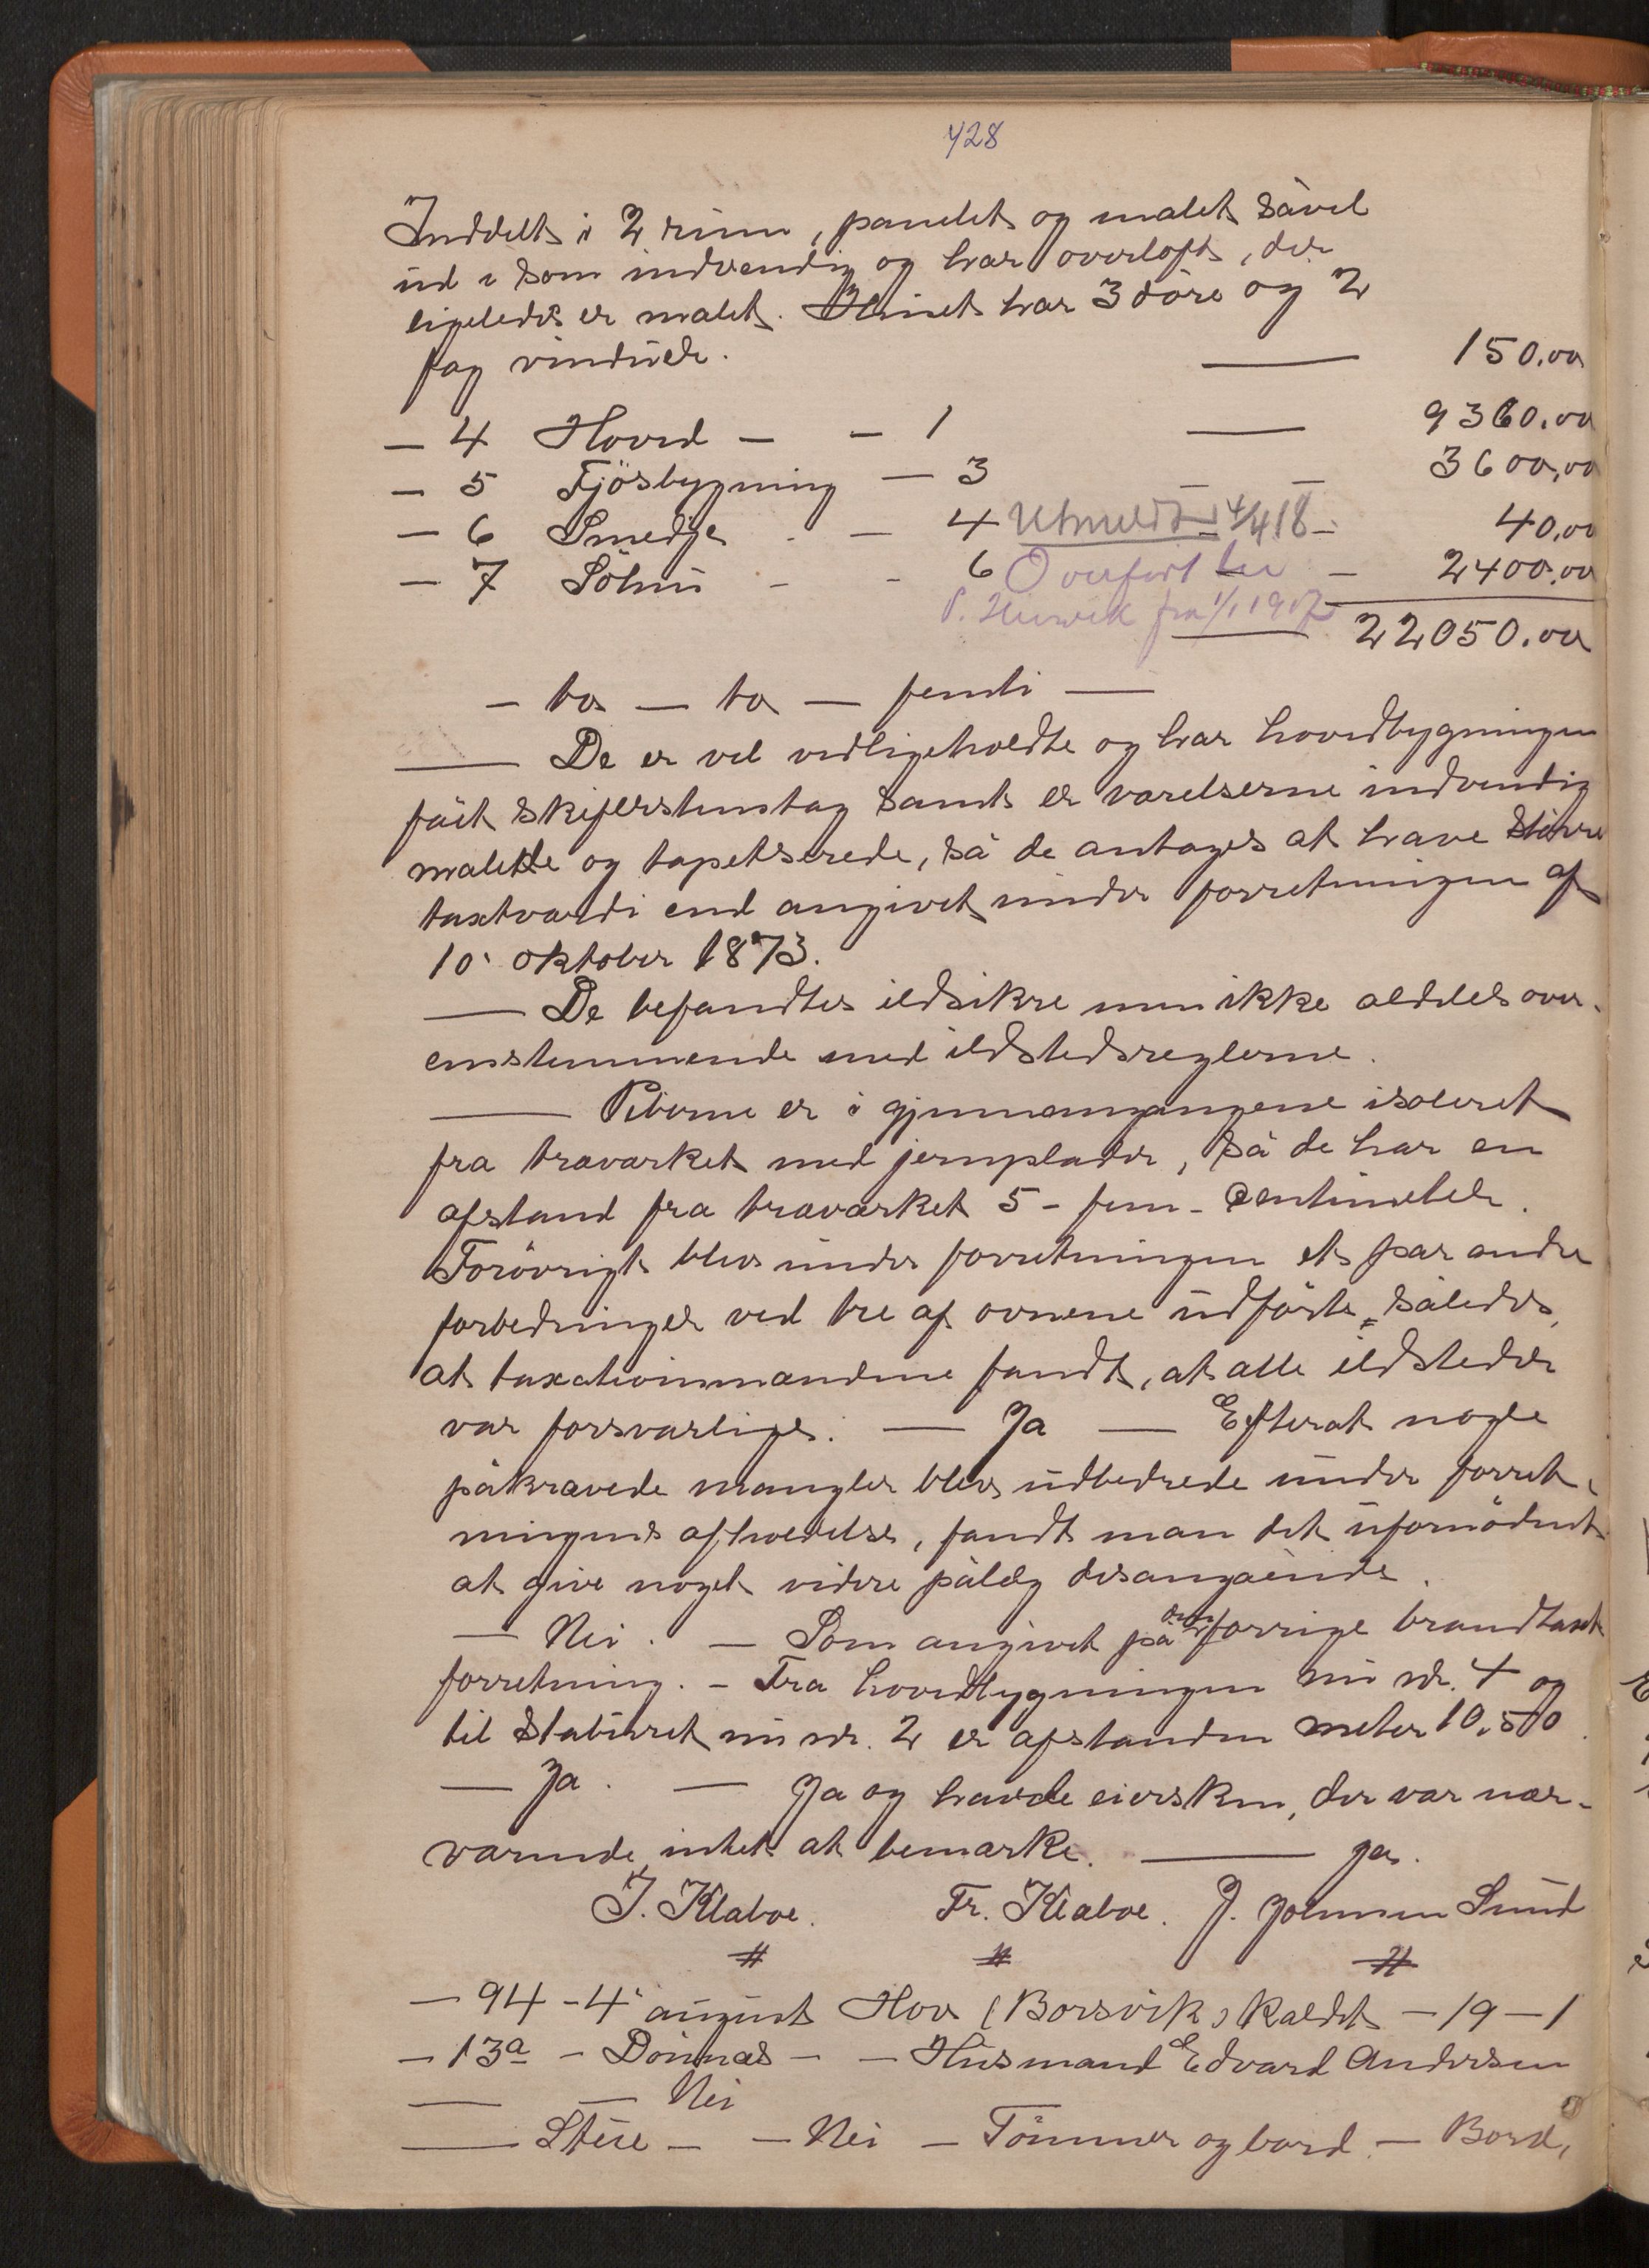 428
Inddelt i 2 rum, panelet og malet såvel
ud - som indvendig og har overloft, der
ligeledes er malet. Huset har 3 døre og 2
fag vinduer. — 150.00
— 4 Hoved — — 1 — 9360.00
— 5 Fjösbygning — 3 — — 3600,00
— 6 Smedje - — 4 Utmeldt 4/4 18 — 40,00
— 7 Söhus - - 6 Overført — 2400.00
P. Husvik fra 1/1 1917 — 22050.00
— to — to — femti —
— De er vel vedligeholdte og har hovedbygningen
fået skiferstenstag samt er værelserne indvendig
malede og tapetserede, så de antages at have större
taxtværdi end angivet under forretningen af
10. oktober 1873.
— De befandtes ildsikre men ikke aldeles over-
ensstemmende med ildstedsreglerne.
— Piberne er i gjennemgangene isoleret
fra træværket med jernplader, så de har en
afstand fra træværket 5 - fem - centimeter.
Forövrigt blev under forretningen et par andre
forbedringer ved tre af ovnene udförte, således,
at taxationsmændene fandt, at alle ildsteder
var forsvarlige. — Ja — Efterat nogle
påkrævede mangler blev udbedrede under forret-
ningens afholdelse, fandt man det ufornödent
at give noget videre pålæg desangående.
— Nei. — Som angivet på den forrige brandtaxt
forretning. — Fra hovedbygningen nu nr. 4 og
til staburet nu nr. 2 er afstanden meter 10.50.
— Ja. — Ja og havde eiersken, der var nær-
værende intet at bemærke. — Ja.
J. Klæboe. Fr. Klæboe. J. Johnsen Sund
# # #
— 94 - 4. august Hov (Borsvik) kaldet — 19 — 1
— 13a - Dönnæs - — Husmand Edvard Andersen
— — Nei
— Stue — — Nei — Tömmer og bord. — Bord,